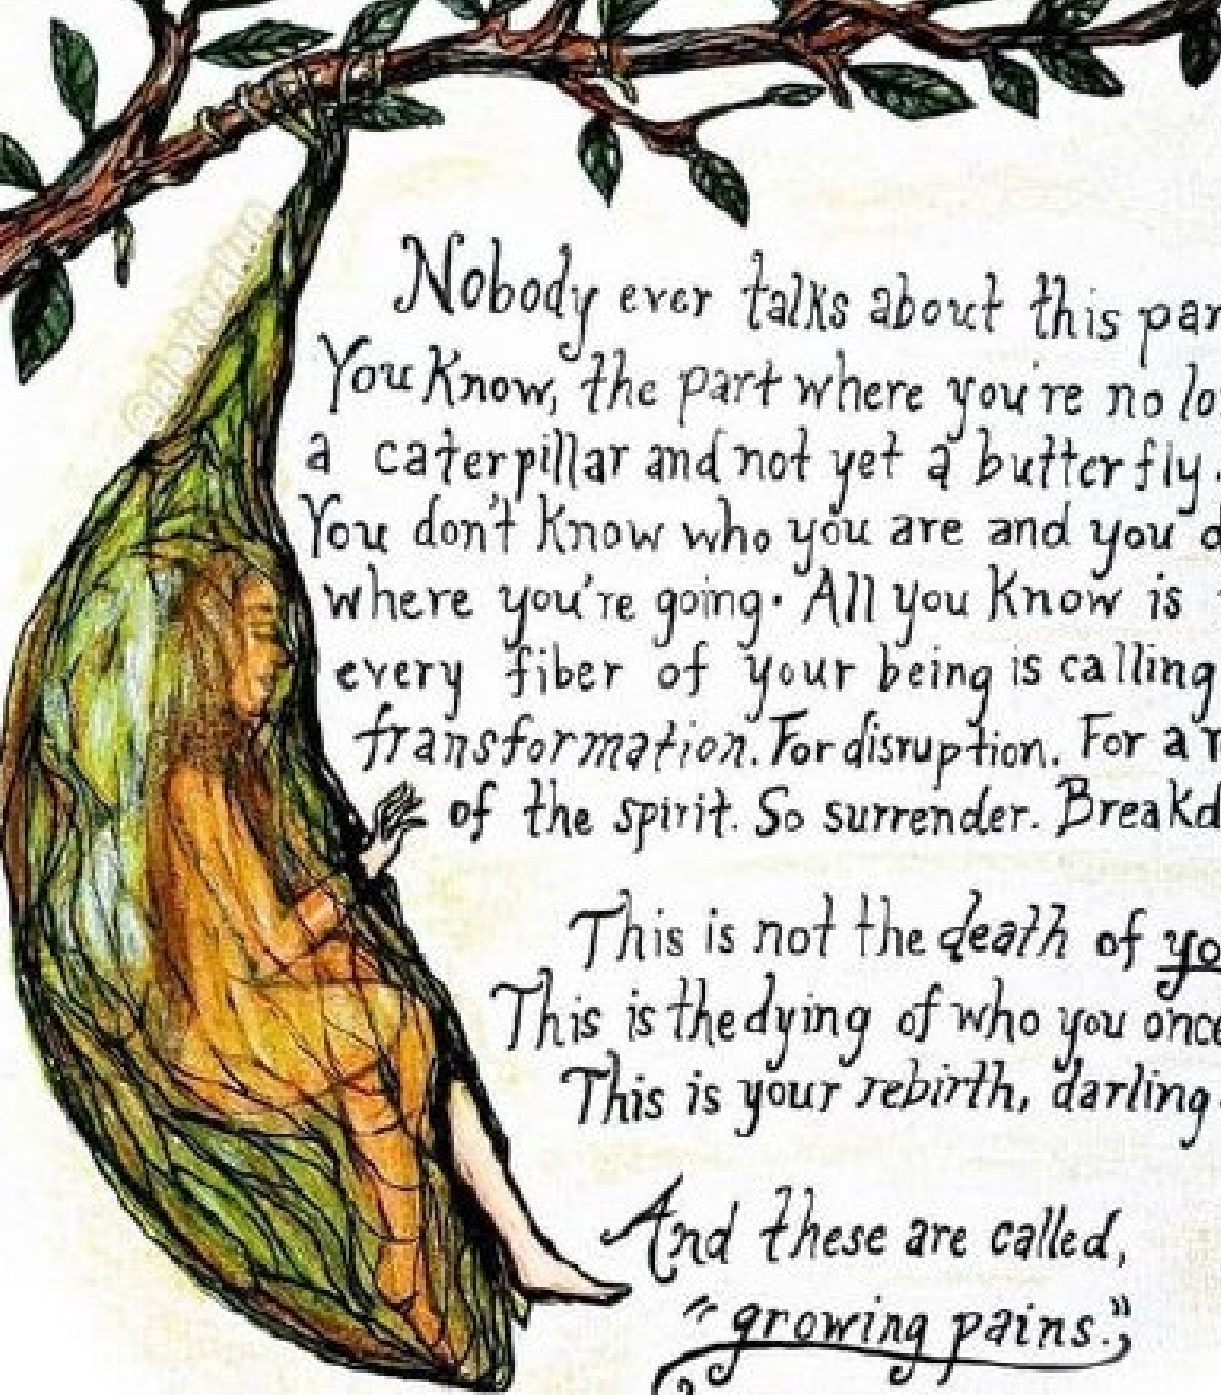 Nobody ever talks about this par
You Know, the part where you're no lo
a caterpillar and not yet a butterfly.
You don't Know who you are and you d
where you're going. All you Know is
every fiber of your being is calling
transformation. For disruption. For a r
of the spirit. So surrender. Breakd
This is not the death of yo
This is the dying of who you once
This is your rebirth, darling.
And these are called,
"growing pains."